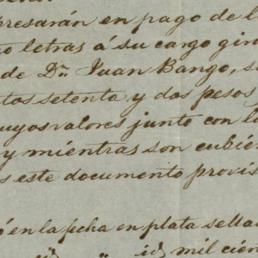 presarán en pago de l
o letras á su cargo gir
de Dn. Juan Bango, s
tos setenta y dos pesos
cuyos valores junto con l
y mientras son cubie
s este documento provis
ó en la fcha en plata sella
mil cien